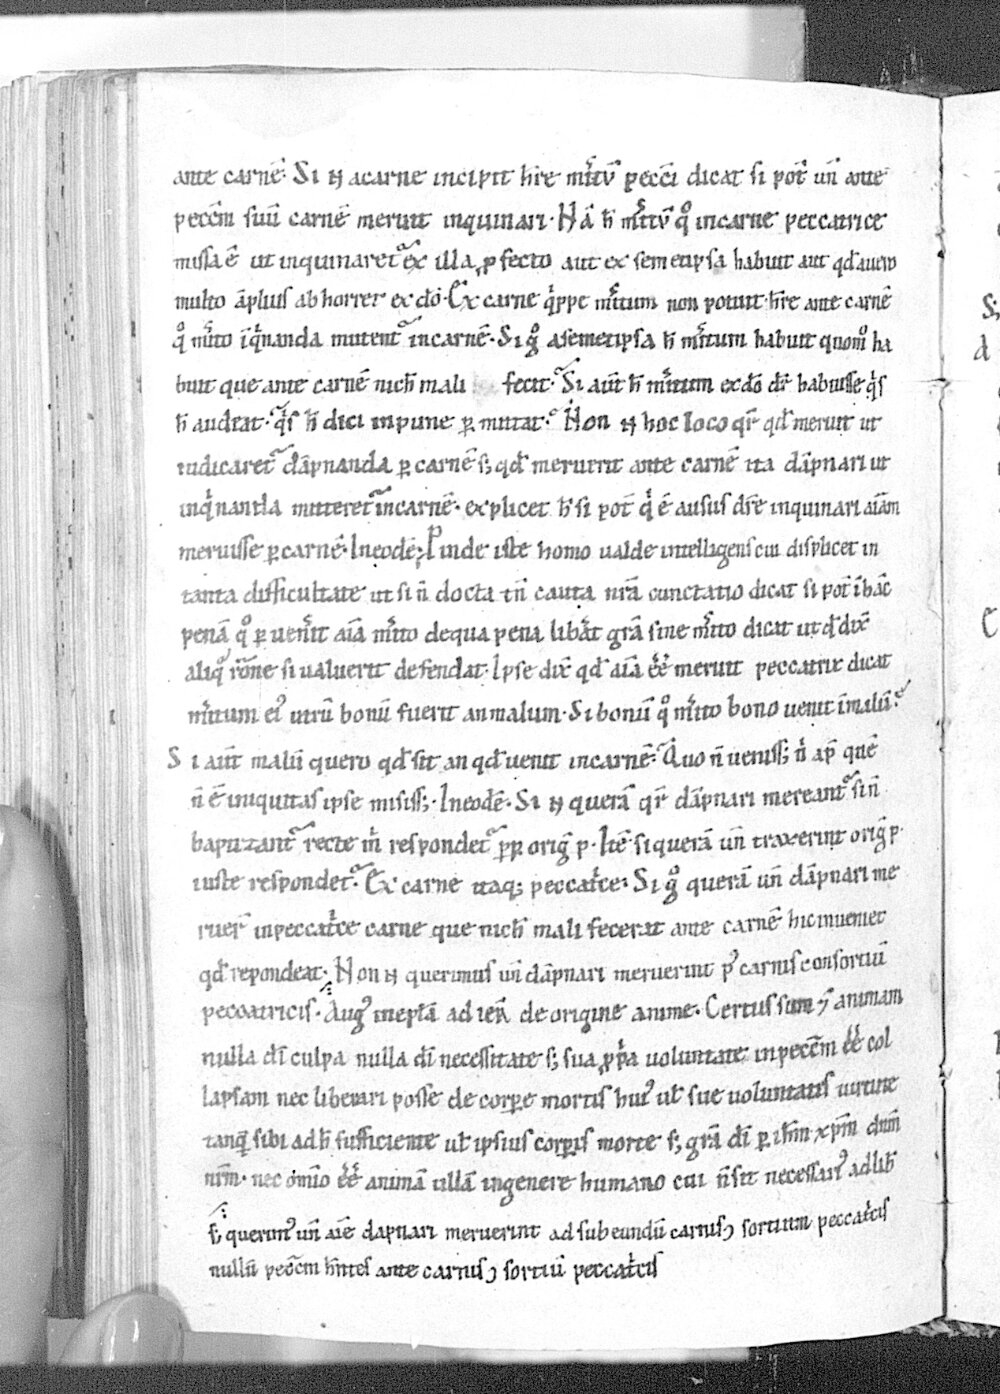 ante carnē. Si ñ acarne incipit hr̄e mr̄itū pecc̄i dicat si pot̄ un̄ ante
pecc̄m suū carnē meruit inquinari. Nā h̄ mr̄itū qͦ incarne peccatrice
missa ē ut inquinaret᷑ ex illa, ꝓfecto aut ex semetipsa habuit aut qđ auero
multo āplius abhorrer ex dō. Ex carne qͥppe mr̄itum non potuit hr̄e ante carnē
qͦ mr̄ito īqͥnanda mitteret᷑ incarnē. Si gͦ asemetipsa h̄ mr̄itum habuit quomͦ ha
buit que ante carnē nich̄ mali fecit. Si aūt h̄ mr̄itum ex dō dr̄ habuisse qͥs
h̄ audeat. qͥs h̄ dici inpune ꝑmittat. Non ñ hoc loco qr̄ qđ meruit ut
iudicaret᷑ dāpnanda ꝑ carnē s; qđ meruerit ante carnē ita dāpnari ut
inqͥnanda mitteret᷑ incarnē. explicet h̄ si pot̄ qͥ ē ausus dr̄e inquinari aīam
meruisse ꝑ carnē. Ineodē; Pinde iste homo ualde intelligens cui displicet in
tanta difficultate ut si n̄ docta tn̄ cauta nr̄a cunctatio dicat si pot̄ ī hāc
penā qͦ ꝑuenit aīa mr̄ito dequa pena libāt grā sine mr̄ito dicat ut qđ dix̄
aliqͣ rōne si ualuerit defendat. Ipse dix̄ qđ aīa eē meruit peccatrix dicat
mr̄itum eiꝰ utrū bonū fuerit an malum. Si bonū qͦ mr̄ito bono uenit ī malū.
Si aūt malū quero qđ sit an qđ uenit incarnē. Quo n̄ ueniss; n̄ ap̄ quē
n̄ ē iniquitas ipse misiss;. Ineodē. Si ñ querā qr̄ dāpnari mereant᷑ si n̄
baptizant᷑ recte m̄ respondet᷑ ꝓpt̄ oriḡ p. Itē si querā un̄ traxerint oriḡ p.
iuste respondet᷑. Ex carne itaq; peccatͥce. Si gͦ querā un̄ dāpnari me
ruer̄ inpeccatͥce carne que nich̄ mali fecerat ante carnē hic inueniet
qđ repondeat. Non ñ querimus un̄ dāpnari meruerint pꝰ carnis consortiū
peccatricis. Augꝰ in epl̄a ad ier̄ de origine anime. Certus sum ⁊ animam
nulla dī culpa nulla dī necessitate s; sua ꝓp̄a uoluntate inpecc̄m eē col
lapsam nec liberari posse de corpe mortis huiꝰ ut̄ sue uoluntatis uirtute
tanq̄ sibi adh̄ sufficiente ut̄ ipsius corꝑis morte s; grā dī ꝑ ih̄m xp̄m dn̄m
nr̄m. nec ōmīo eē animā ullā ingenere humano cui n̄ sit necessariꝰ ad lib̄
s; querimꝰ un̄ aīe dapnari meruerint ad subeundū carnis ↄsortium peccatͥcis
nullū pecc̄m hn̄tes ante carnis ↄsortiū peccatͥcis